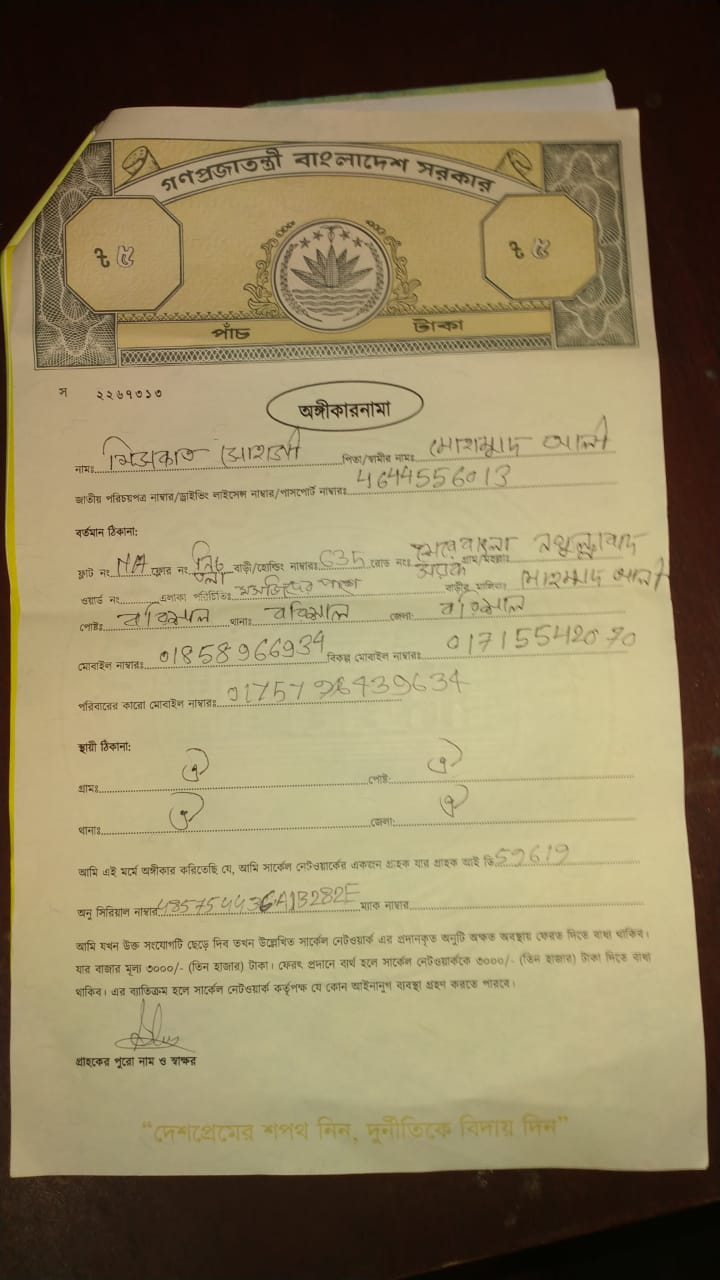 গণপ্রজাতন্ত্রী বাংলাদেশ সরকার
৳ ৫ ৳ ৫
পাঁচ টাকা
স ২২৬৭৩১৩
অঙ্গীকারনামা
নামঃ পিতা/স্বামীর নামঃ মোহাম্মদ আলী
জাতীয় পরিচয়পত্র নাম্বার/ড্রাইভিং লাইসেন্স নাম্বার/পাসপোর্ট নাম্বারঃ 4644556013
বর্তমান ঠিকানা:
ফ্লাট নং NA ফ্লোর নং নিচ তলা বাড়ী/হোল্ডিং নাম্বারঃ 635 রোড নংঃ শেরে বাংলা সড়ক গ্রাম/মহল্লাঃ
ওয়ার্ড নং এলাকা পরিচিতিঃ মসজিদের পাশে বাড়ীর মালিকঃ মোহাম্মদ আলী
পোষ্টঃ বরিশাল থানাঃ বরিশাল জেলা: বরিশাল
মোবাইল নাম্বারঃ 01858966934 বিকল্প মোবাইল নাম্বারঃ
পরিবারের কারো মোবাইল নাম্বারঃ
স্থায়ী ঠিকানা:
গ্রামঃ ঐ পোষ্ট: ঐ
থানাঃ ঐ জেলা: ঐ
আমি এই মর্মে অঙ্গীকার করিতেছি যে, আমি সার্কেল নেটওয়ার্কের একজন গ্রাহক যার গ্রাহক আই ডি 59619
অনু সিরিয়াল নাম্বার ম্যাক নাম্বার
আমি যখন উক্ত সংযোগটি ছেড়ে দিব তখন উল্লেখিত সার্কেল নেটওয়ার্ক এর প্রদানকৃত অনুটি অক্ষত অবস্থায় ফেরত দিতে বাধ্য থাকিব।
যার বাজার মূল্য ৩০০০/- (তিন হাজার) টাকা। ফেরৎ প্রদানে ব্যর্থ হলে সার্কেল নেটওয়ার্ককে ৩০০০/- (তিন হাজার) টাকা দিতে বাধ্য
থাকিব। এর ব্যতিক্রম হলে সার্কেল নেটওয়ার্ক কর্তৃপক্ষ যে কোন আইনানুগ ব্যবস্থা গ্রহণ করতে পারবে।
গ্রাহকের পুরো নাম ও স্বাক্ষর
“দেশপ্রেমের শপথ নিন, দুর্নীতিকে বিদায় দিন”